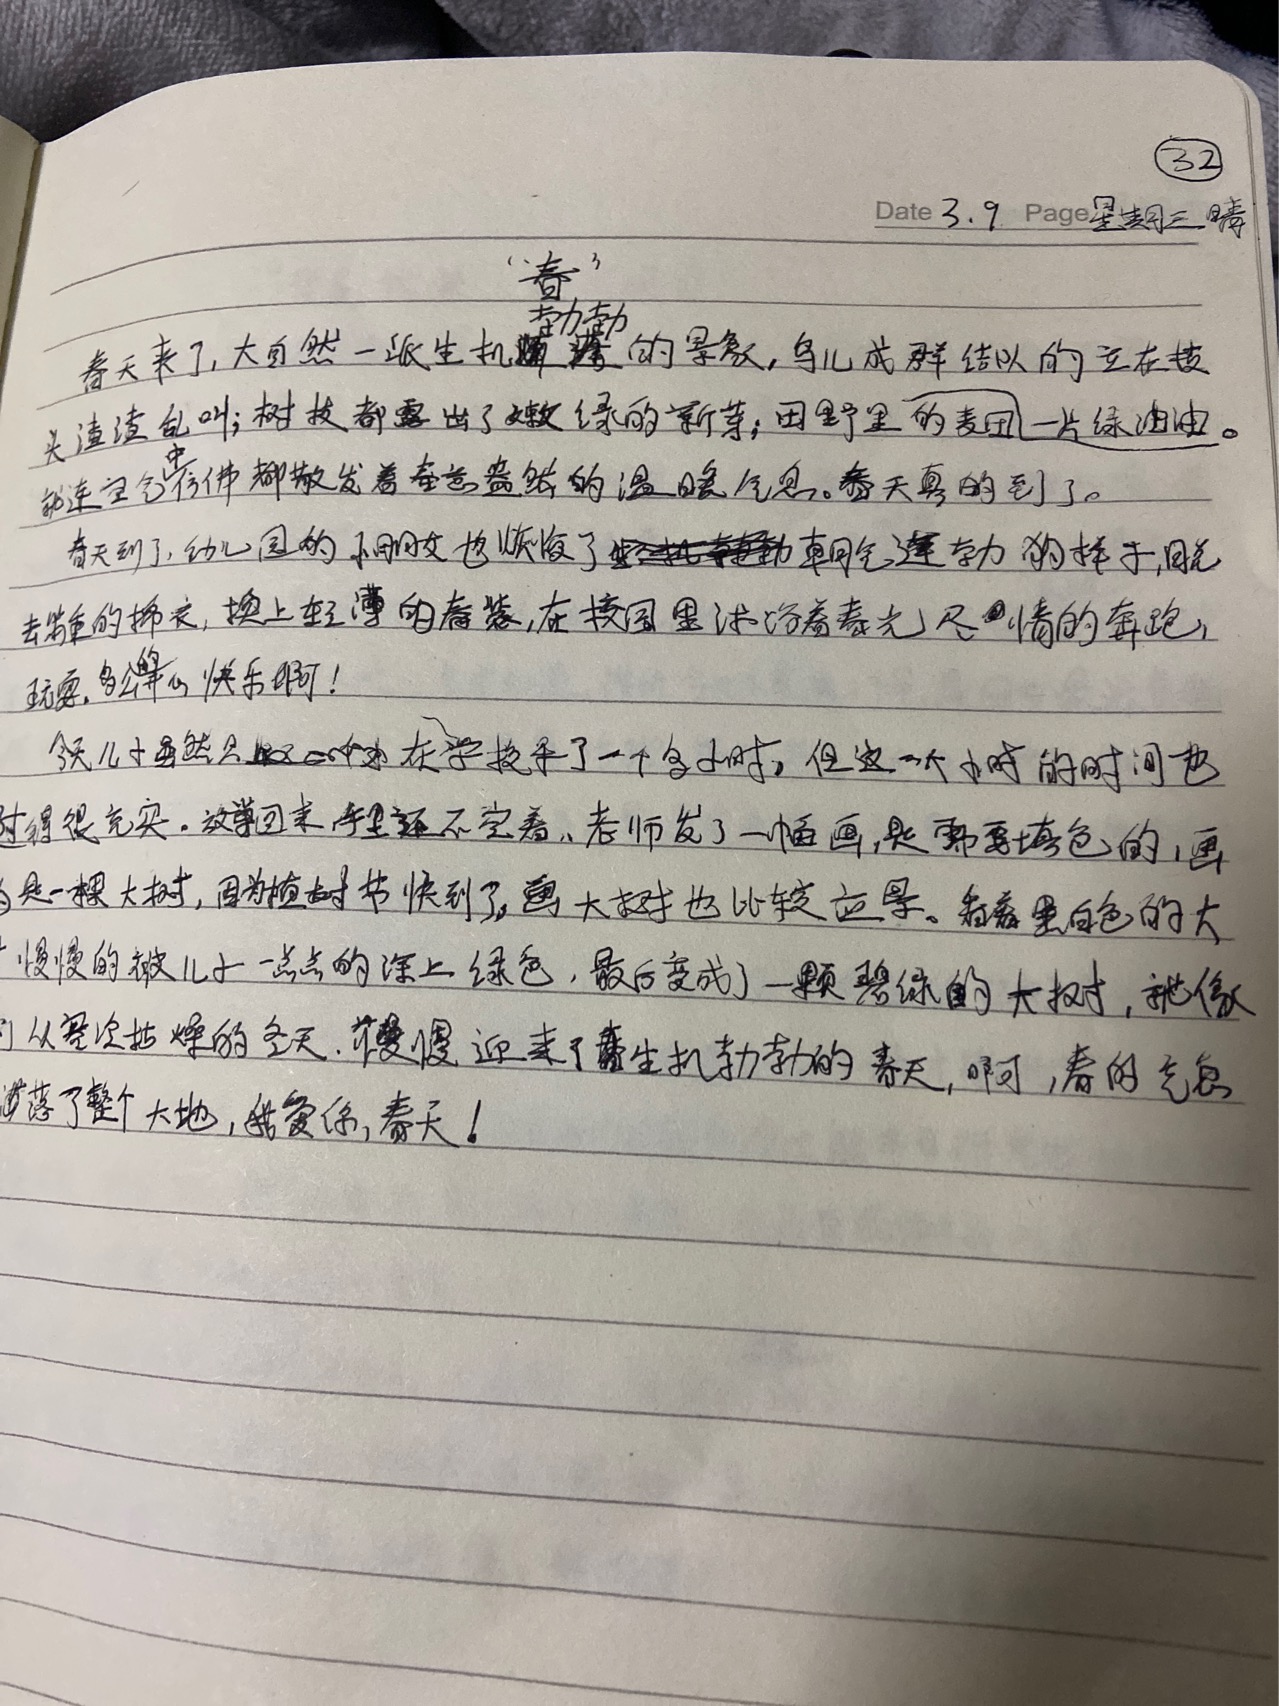 32
Date 3.9 Page 星期三 晴
"春"
勃勃
春天来了,大自然一派生机的景象,鸟儿成群结队的立在枝
头渣渣乱叫;树枝都露出了嫩绿的新芽;田野里的麦田一片绿油油。
就连空气中仿佛都散发着春意盎然的温暖气息。春天真的到了。
春天到了,幼儿园的小朋友也恢复了朝气蓬勃的样子,脱
去笨重的棉衣,换上轻薄的春装,在校园里沐浴着春光尽情的奔跑,
玩耍,多么快乐啊!
今天儿子虽然只在学校呆了一个多小时,但这一个小时的时间也
过得很充实。放学回来手里还不空着、老师发了一幅画,是需要填色的,画
是一棵大树,因为植树节快到了,画大树也比较应景。看着黑白色的大
慢慢的被儿子一点点的涂上绿色,最后变成了一颗碧绿的大树,就像
们从寒冷枯燥的冬天,慢慢迎来了生机勃勃的春天,啊,春的气息
洒落了整个大地,我爱你,春天!